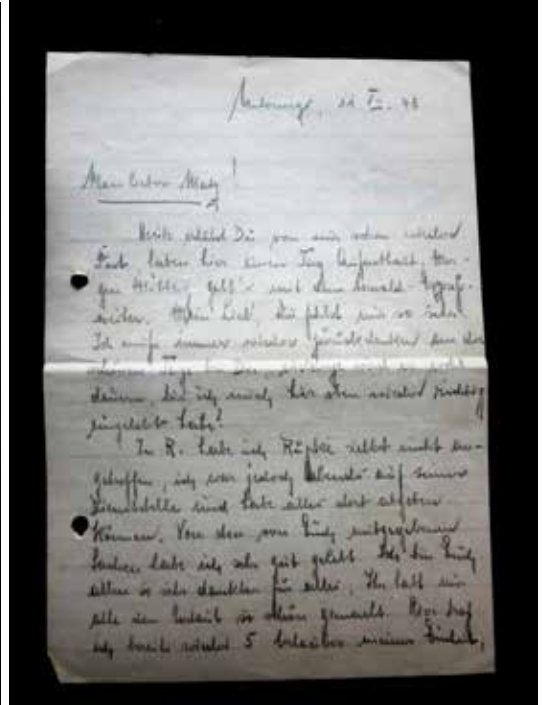 Mein lieber Matz!
Heute erhältst Du von mir schon wieder
Post, haben hier einen Tag Aufenthalt, Mor-
gen geht's mit dem
weiter. Mein Lieb, Du fehlst mir so sehr.
Ich muß immer wieder zurückdenken an die
schönen Tage
dauern, bis ich mich hier oben wieder richtig
eingelebt habe!
In R. habe ich selbst nicht an-
getroffen, ich war jedoch abends auf seiner
Dienststelle und habe alles dort abgeben
können. Von den von Euch mitgegebenen
Sachen habe ich sehr gut gelebt. Ich bin Euch
allen so sehr dankbar für alles, Ihr habt mir
alle den Urlaub so schön gemacht. Hier traf
ich bereits wieder 5 meiner Einheit,